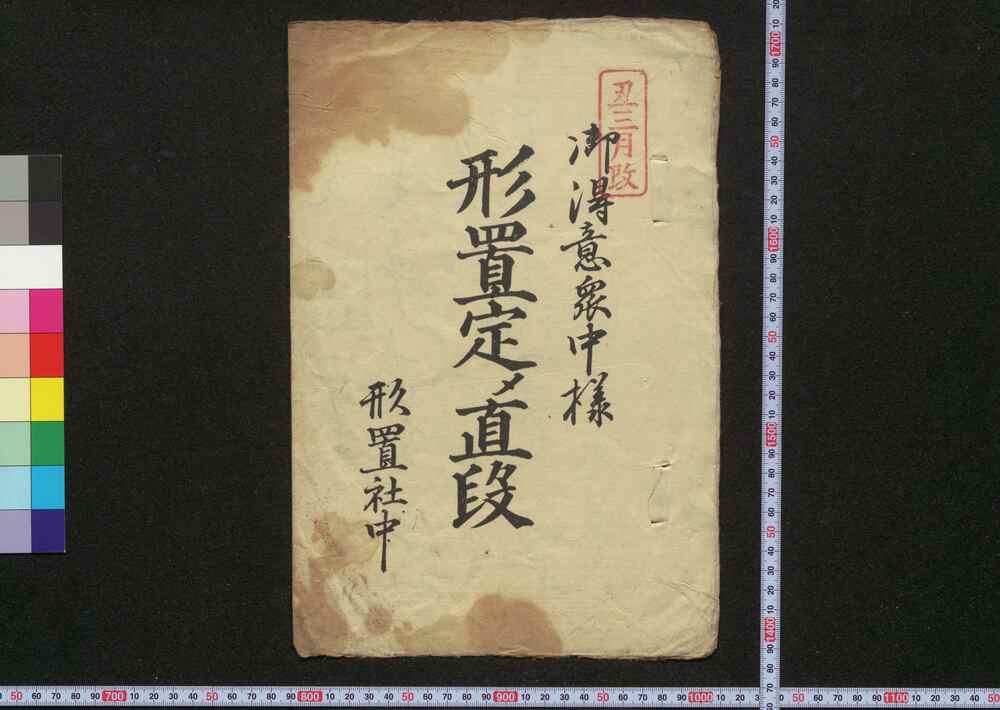 丑三月改
御得意衆中様
形置定〆直段
形置社中